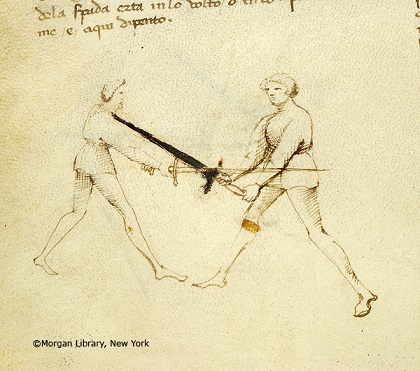 dela spada erta in lo volto o in lo
me e aqui dipento.
©Morgan Library, New York